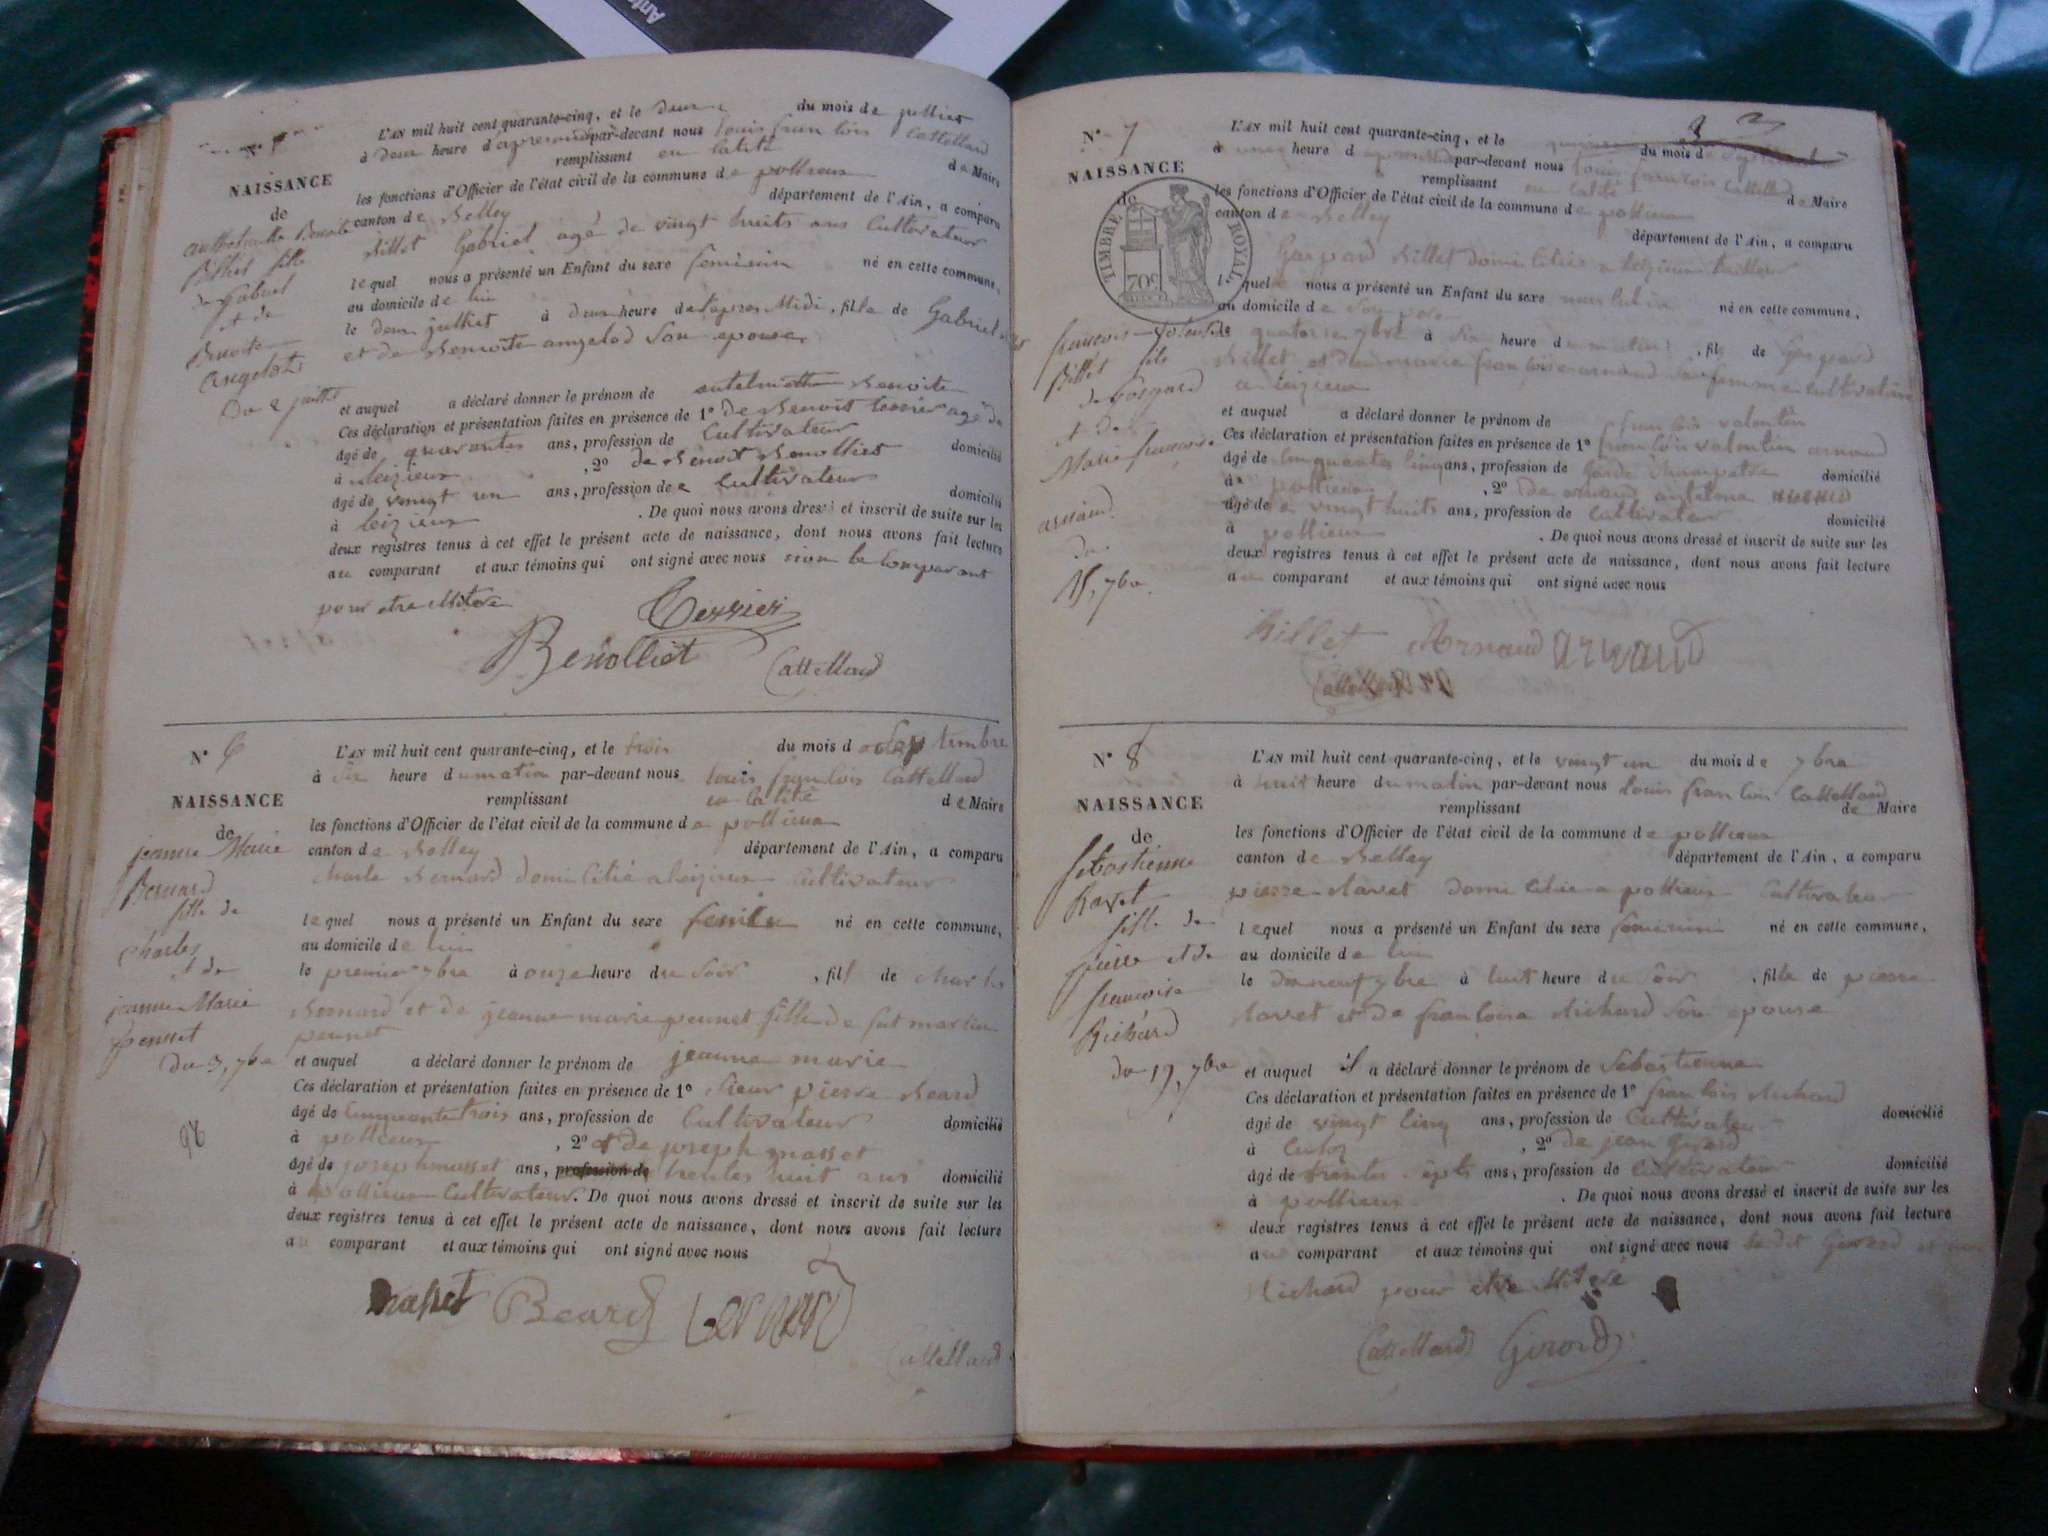 NAISSANCE
de
Billiet fille
de Gabriel
et de
Benoite
Angelot
Du 2 juillet
L'AN mil huit cent quarante-cinq, et le deux du mois de
à deux heure d'apres midi par-devant nous louis francois Cattelland
remplissant en calité de Maire
les fonctions d'Officier de l'état civil de la commune de pollieux
canton de Belley département de l'Ain, a comparu
Billet Gabriel agé de vingt huits ans Cultivateur
lequel nous a présenté un Enfant du sexe feminin né en cette commune,
au domicile de lui
le deux julliet à deux heure de lapres Midi, fille de Gabriel
et de Benoite angelod Son epouse
et auquel a déclaré donner le prénom de antelmette Benoite
Ces déclaration et présentation faites en présence de 1° de Benoit tessier agé de
âgé de quarantes ans, profession de Cultivateur domicilié
à leizieux, 2° de Benoit Benolliet
âgé de vingt un ans, profession de Cultivateur domicilié
à leizieux. De quoi nous avons dressé et inscrit de suite sur les
deux registres tenus à cet effet le présent acte de naissance, dont nous avons fait lecture
au comparant et aux témoins qui ont signé avec nous le comparant
pour etre
Tessier
Benolliet
Cattelland
N° 6
NAISSANCE
de
jeanne Marie
Bernard
fille de
charles
et de
jeanne Marie
penet
Du 3, 7bre
98
L'AN mil huit cent quarante-cinq, et le trois du mois de septembre
à six heure du matin par-devant nous louis francois Cattelland
remplissant en calité de Maire
les fonctions d'Officier de l'état civil de la commune de pollieux
canton de Belley département de l'Ain, a comparu
charle Bernard domicilié a leizieux Cultivateur
lequel nous a présenté un Enfant du sexe né en cette commune,
au domicile de lui
le premier 7bre à onze heure du soir, fill de charles
Bernard et de jeanne marie pennet fille de fut martin
pennet
et auquel a déclaré donner le prénom de jeanne marie
Ces déclaration et présentation faites en présence de 1° sieur pierre Beard
âgé de Cinquante trois ans, profession de Cultivateur domicilié
à pollieux, 2° de joseph masset
âgé de joseph masset ans, profession de trentes huit ans domicilié
à pollieux Cultivateur. De quoi nous avons dressé et inscrit de suite sur les
deux registres tenus à cet effet le présent acte de naissance, dont nous avons fait lecture
au comparant et aux témoins qui ont signé avec nous
masset Beard Bernard
Cattelland
N° 7
NAISSANCE
de
TIMBRE ROYAL
70c
francois
Billet fils
de Gaspard
et de
Marie francoise
arnaud.
du
15, 7bre.
L'AN mil huit cent quarante-cinq, et le quinze du mois de
à heure d par-devant nous louis francois Cattelland
remplissant en calité de Maire
les fonctions d'Officier de l'état civil de la commune de pollieux
canton de Belley département de l'Ain, a comparu
Gaspard Billet domicilié a leizieux
lequel nous a présenté un Enfant du sexe masculin né en cette commune,
au domicile de son pere
le quatorze 7bre à six heure du matin, fils de Gaspard
Billet et de marie francoise arnaud sa femme cultivatrice
a leizieux
et auquel a déclaré donner le prénom de francois valentin
Ces déclaration et présentation faites en présence de 1° francois valentin arnaud
âgé de cinquantes cinq ans, profession de Garde champetre domicilié
à pollieux, 2° de arnaud
âgé de vingt huits ans, profession de Cultivateur domicilié
à pollieux. De quoi nous avons dressé et inscrit de suite sur les
deux registres tenus à cet effet le présent acte de naissance, dont nous avons fait lecture
au comparant et aux témoins qui ont signé avec nous
Billet Arnaud arnaud
N° 8
NAISSANCE
de
Sebastienne
Ravet
fille de
pierre et de
francoise
Richard
du 19, 7bre
L'AN mil huit cent quarante-cinq, et le vingt un du mois de 7bre
à huit heure du matin par-devant nous louis francois Cattelland
remplissant de Maire
les fonctions d'Officier de l'état civil de la commune de pollieux
canton de Belley département de l'Ain, a comparu
pierre Ravet domicilié a pollieux Cultivateur
lequel nous a présenté un Enfant du sexe feminin né en cette commune,
au domicile de lui
le dixneuf 7bre à huit heure du soir, fille de pierre
Ravet et de francoise Richard son epouse
et auquel il a déclaré donner le prénom de Sebastienne
Ces déclaration et présentation faites en présence de 1° francois Richard
âgé de vingt cinq ans, profession de Cultivateur domicilié
à Culoz, 2° de jean girard
âgé de trentes sept ans, profession de Cultivateur domicilié
à pollieux. De quoi nous avons dressé et inscrit de suite sur les
deux registres tenus à cet effet le présent acte de naissance, dont nous avons fait lecture
au comparant et aux témoins qui ont signé avec nous ledit Girard et
Richard pour etre
Cattelland Girard